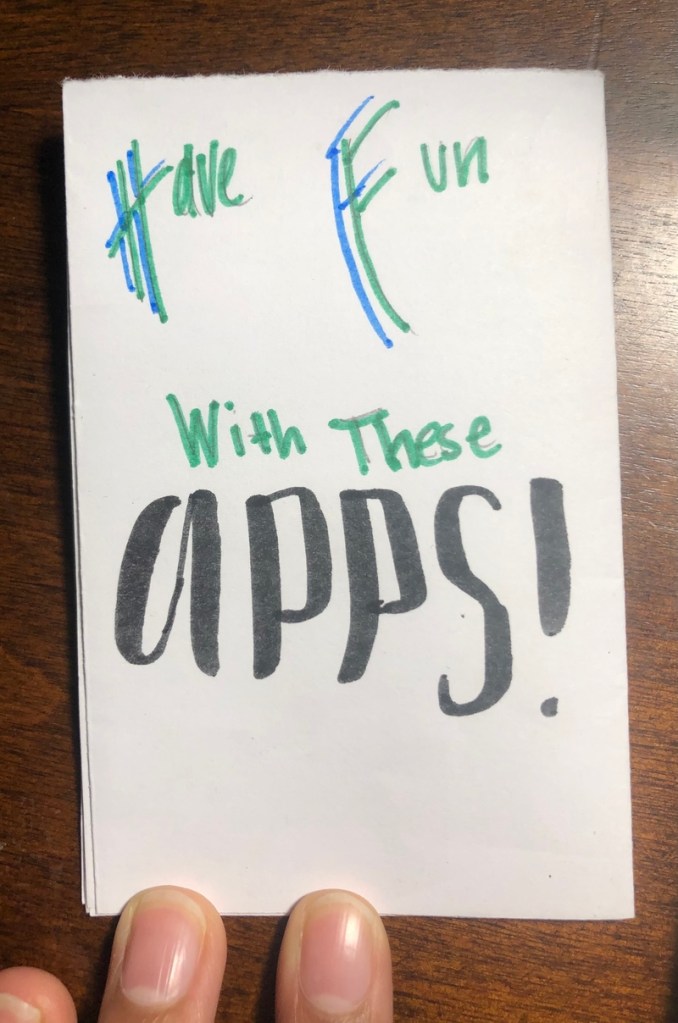 Have Fun
With These
apps!